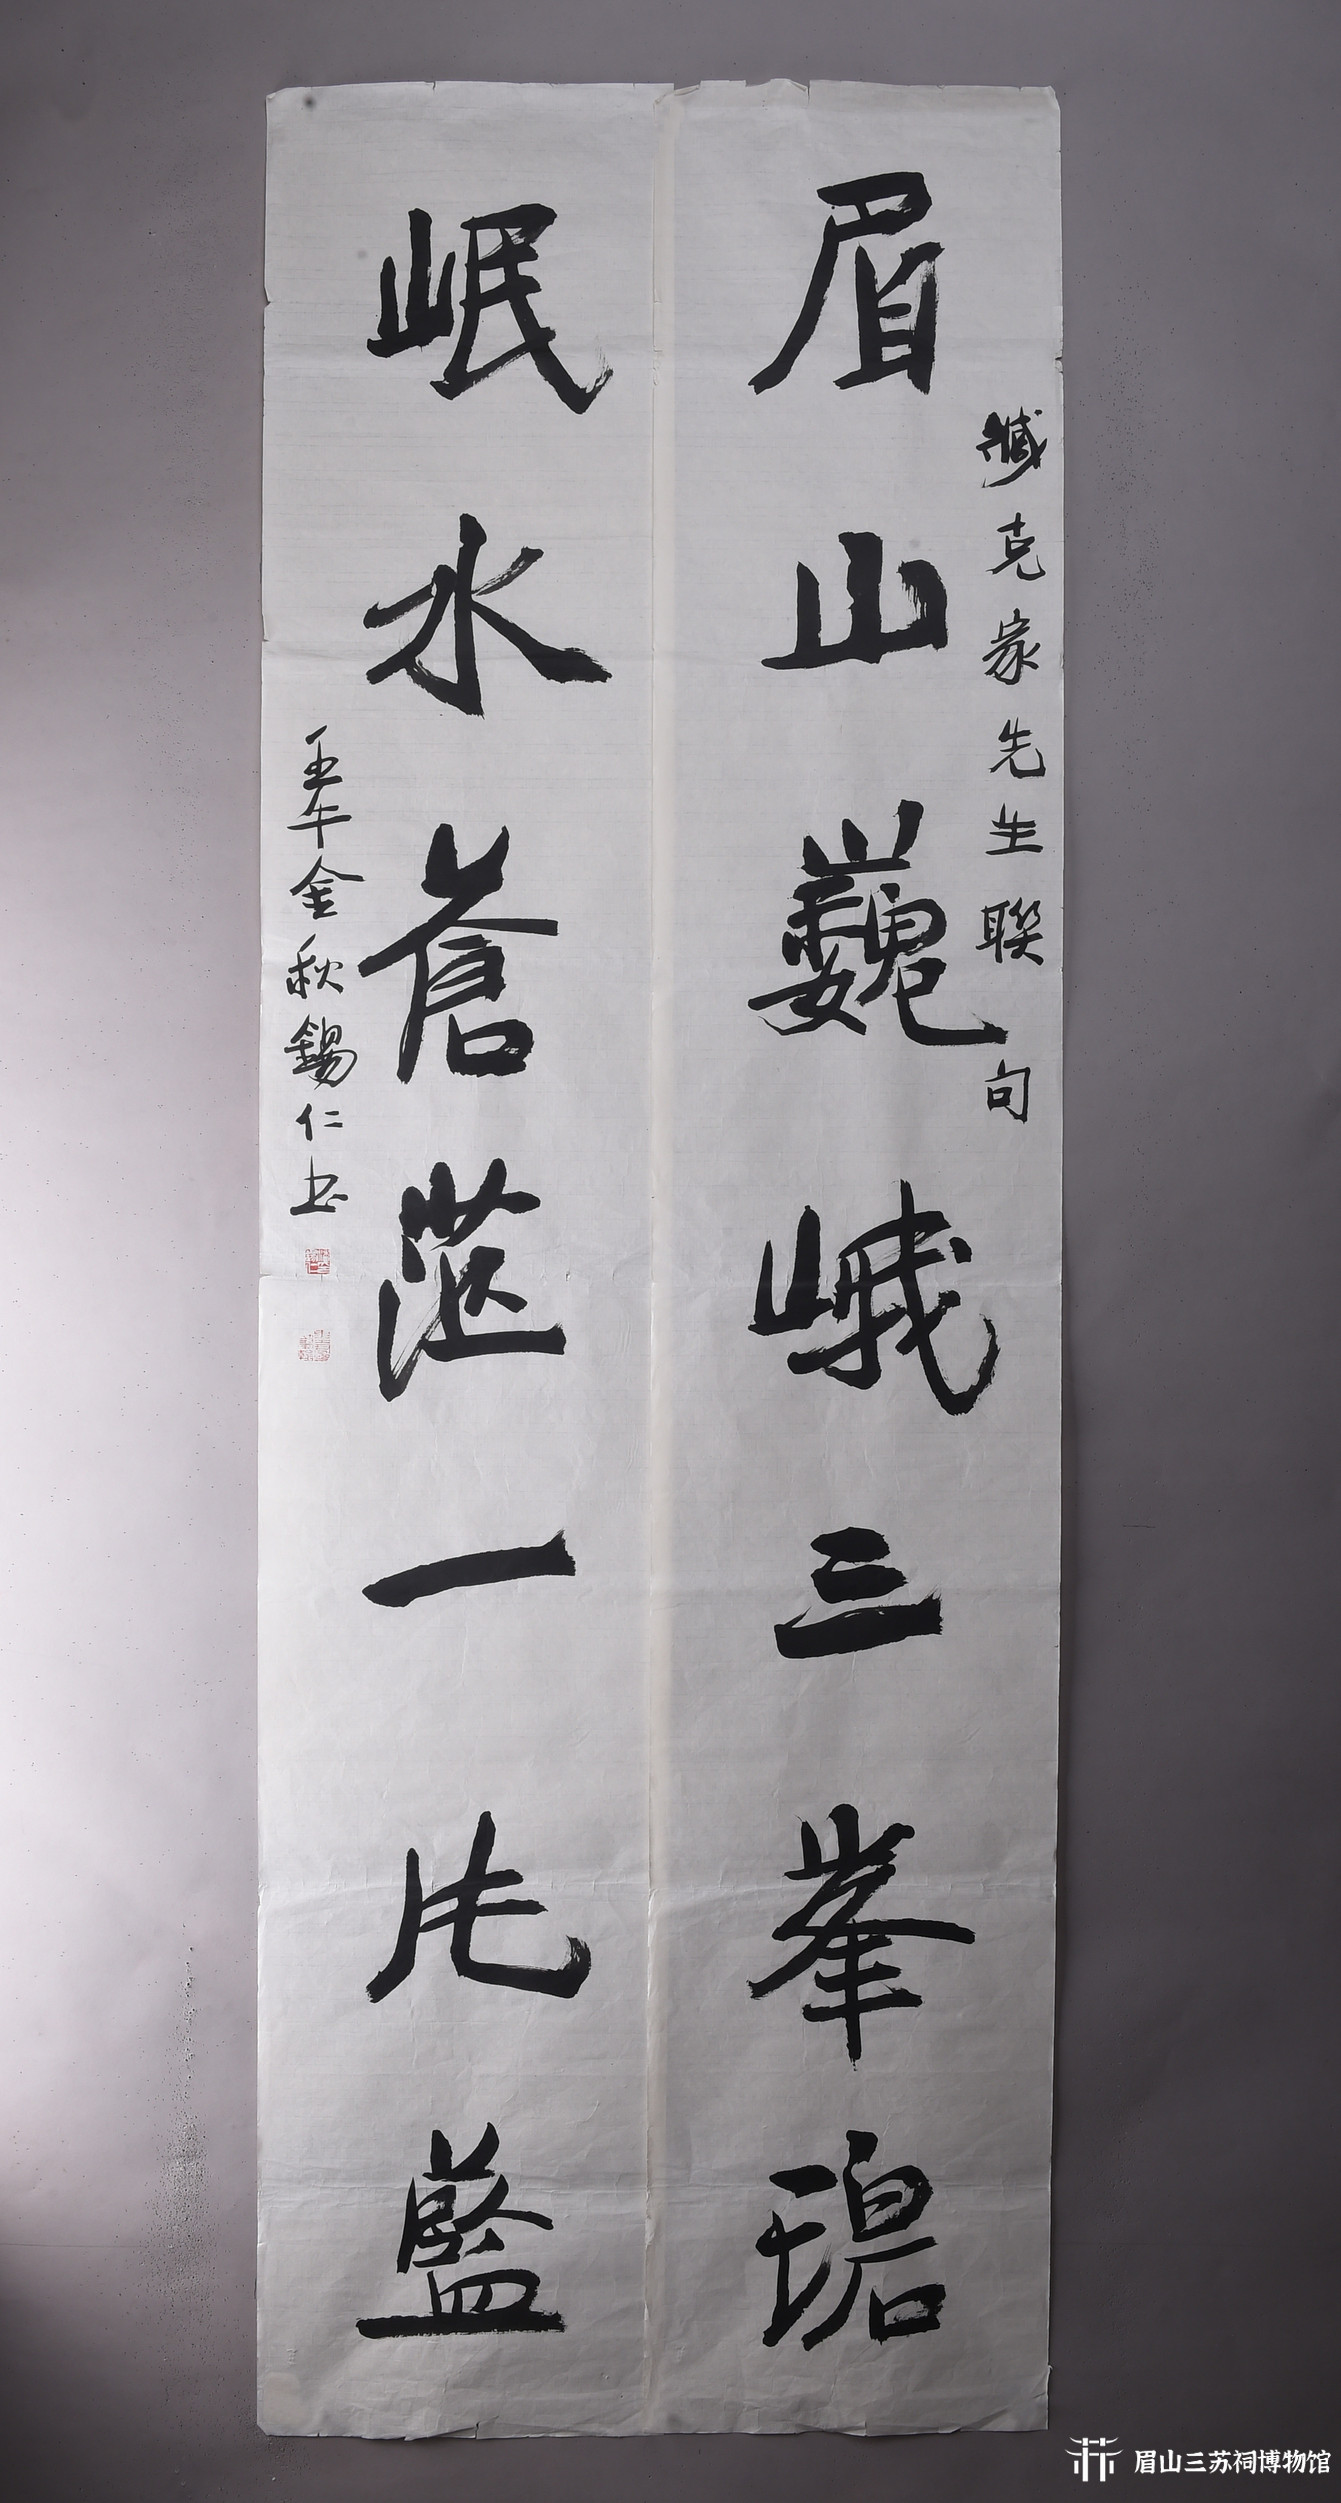 臧克家先生聯句
眉山巍峨三峯碧
岷水蒼茫一片藍
壬午金秋錫仁書
眉山三苏祠博物馆